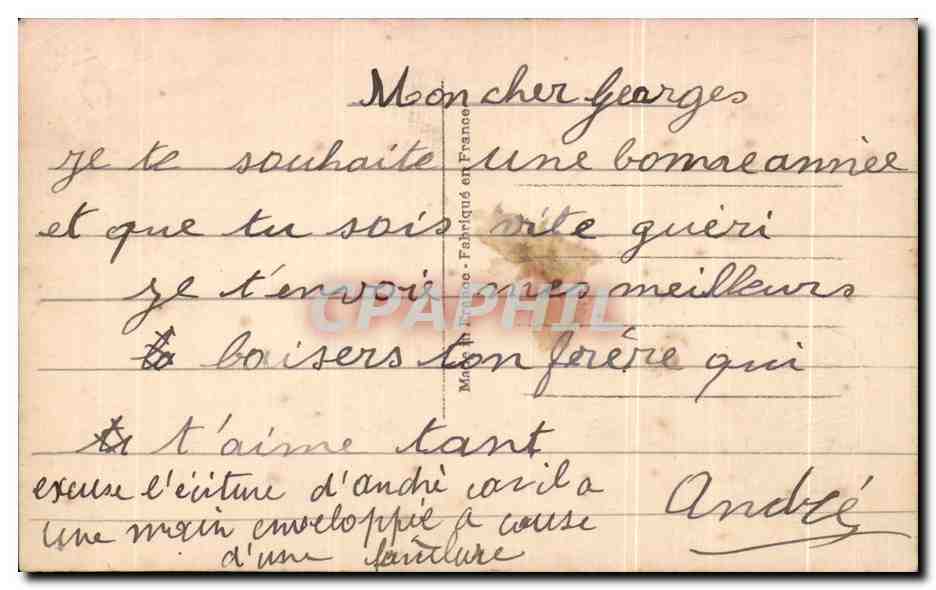 Mon cher Georges
je te souhaite une bonne année
et que tu sois vite guéri
je t'envoie mes meilleurs
baisers ton frère qui
t'aime tant
André
excuse l'écriture d'andré car il a
une main enveloppée a cause
d'une
Made in France - Fabriqué en France
CPAPHIL